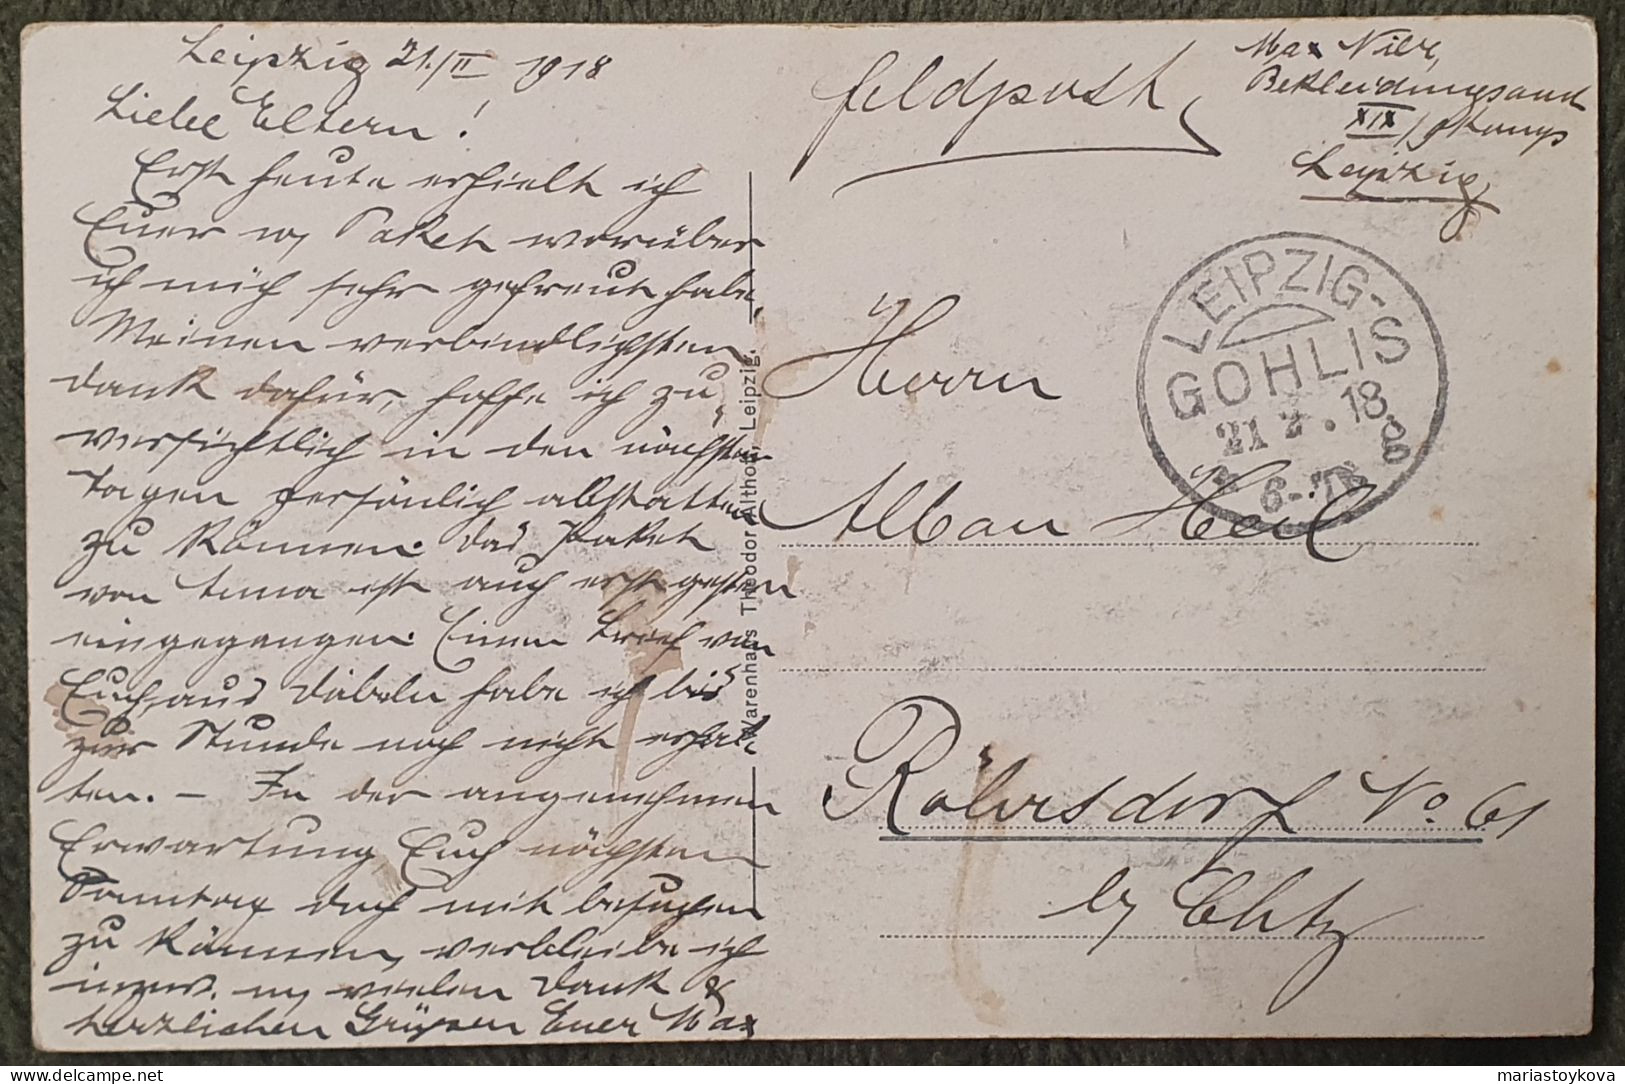 Leipzig 21./II 1918
Liebe Eltern!
Erst heute erhielt ich
Euer Paket worüber
ich mich sehr gefreut habe.
Meinen verbindlichsten
Dank dafür, hoffe ich zu-
versichtlich in den nächsten
Tagen persönlich abstatten
zu können. Das Paket
von ist auch erst gestern
eingegangen. Einen Brief von
Euch aus Döbeln habe ich bis
zur Stunde noch nicht erhal-
ten. – In der angenehmen
Erwartung Euch nächsten
Sonntag doch mit besuchen
zu können, verbleibe ich
inzw. vielen Dank &
herzlichen Grüssen Euer Max
Feldpost
Max Nier,
Bekleidungsamt
XIX/
Leipzig
LEIPZIG-
GOHLIS
21 2.18.
6-7 N
Herrn
Alban Heil
Röhrsdorf No 61
b/ Chtz
Warenhaus Theodor Althoff, Leipzig.
mariastoykova